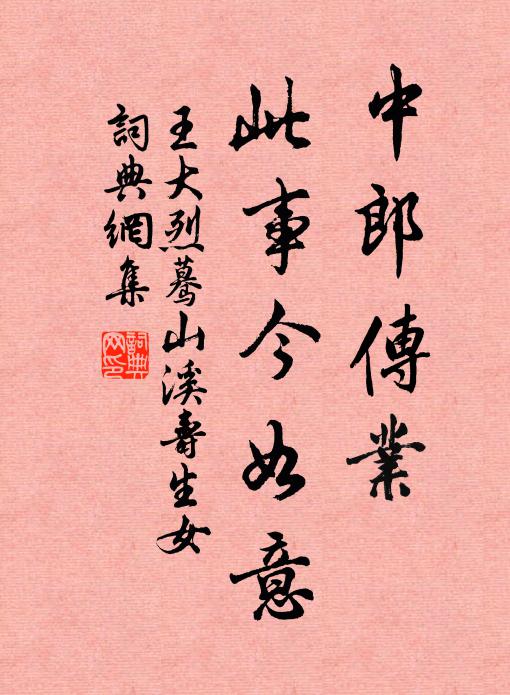 中郎傳業
此事今如意
王大烈驀山溪壽生女
詞典網集
詞典网印